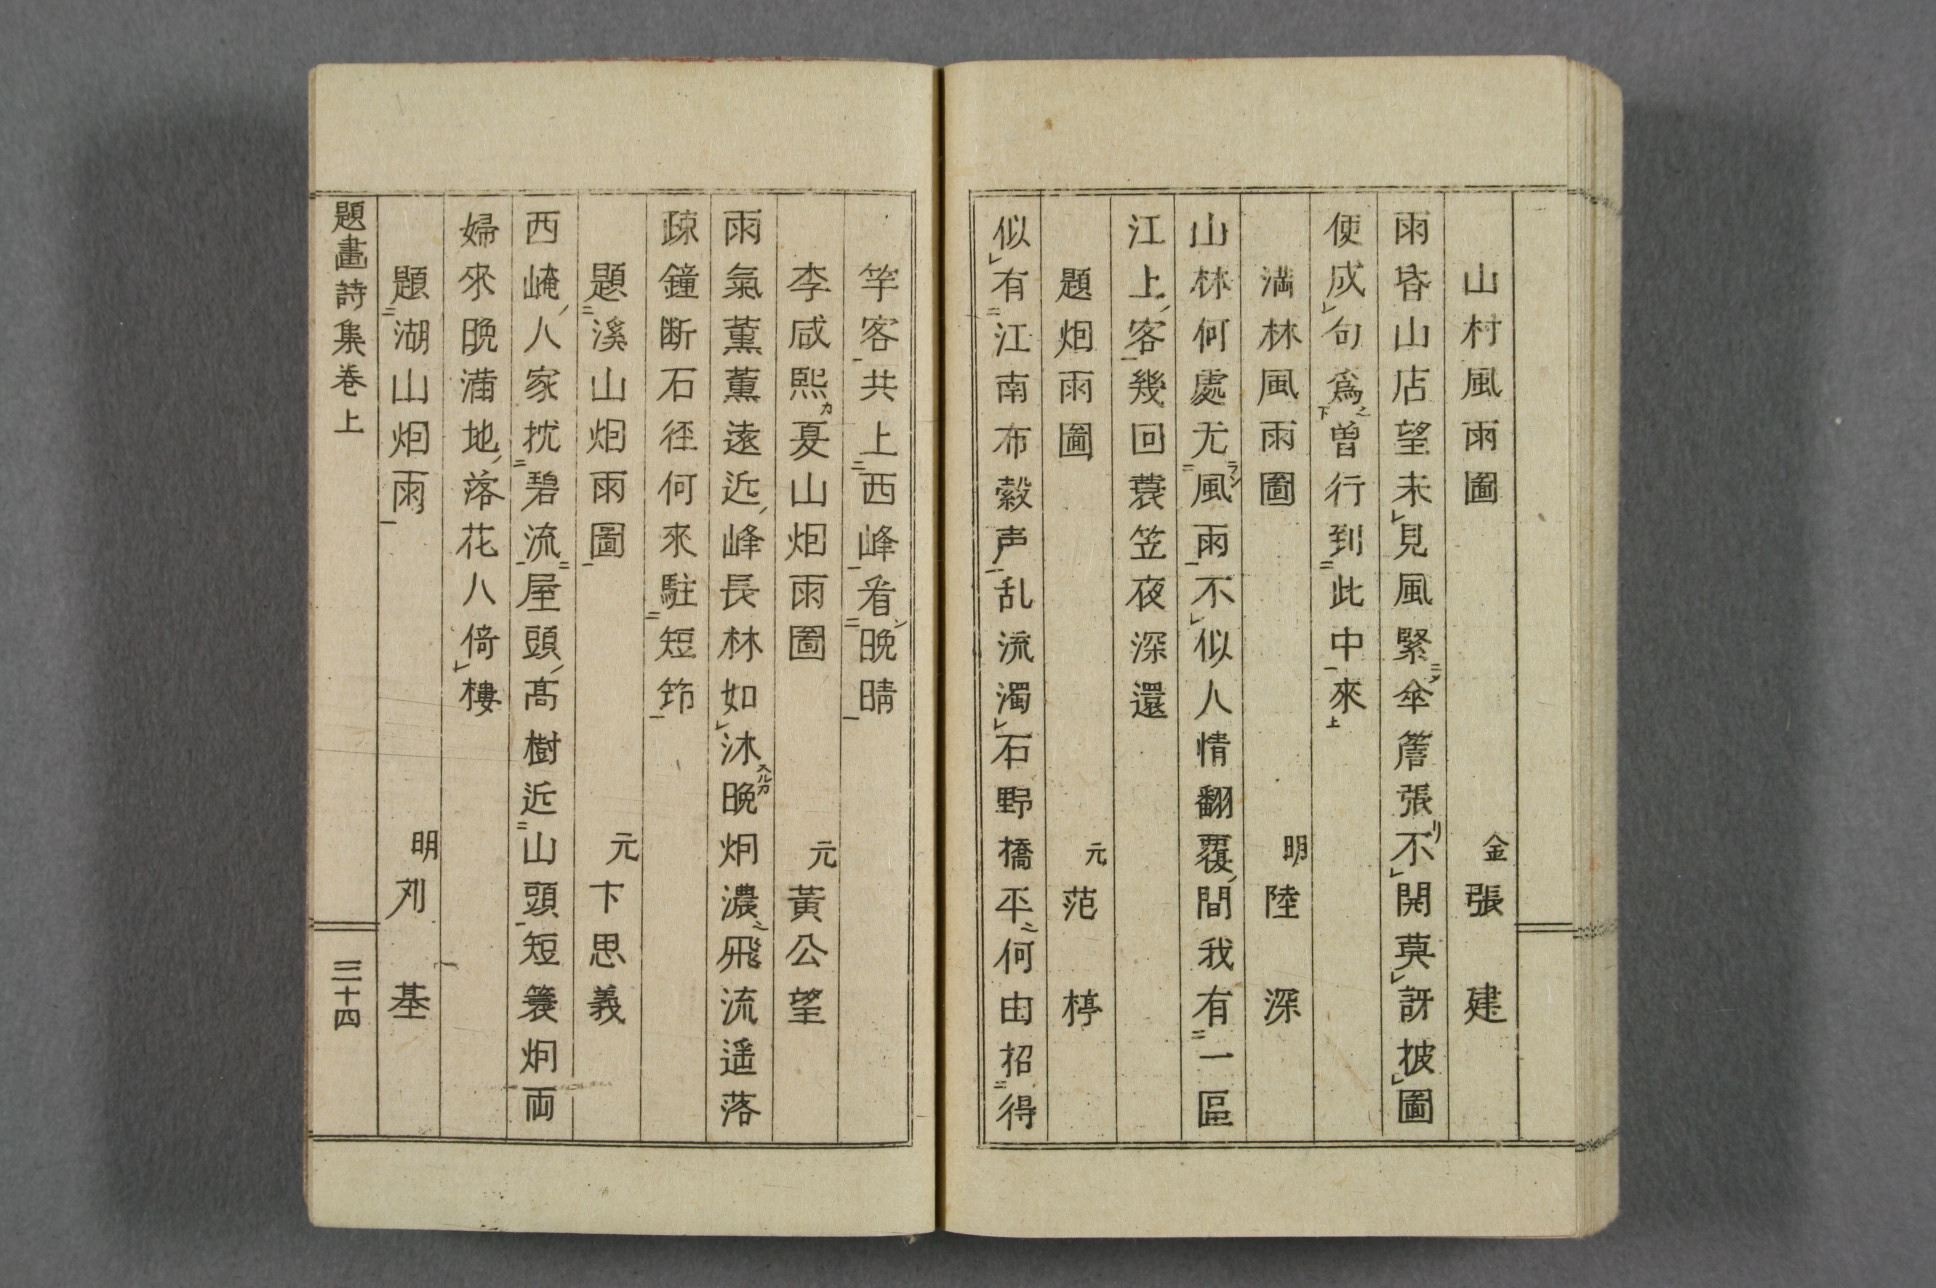 山村風雨圖 金 張建
雨昏山店望未見風緊傘簷張不開莫訝披圖
便成句為曽行到此中來
満林風雨圖 明 陸深
山林何處无風雨不似人情翻覆間我有一區
江上客幾回蓑笠夜深還
題烟雨圖 元 范梈
似有江南布穀声乱流濁石野橋平何由招得
竿客共上西峰看晩晴
李咸熙夏山烟雨圖 元 黃公望
雨氣薫薫遠近峰長林如沐晩烟濃飛流遥落
疎鐘断石径何來駐短筇
題溪山烟雨圖 元 卞思義
西崦人家枕碧流屋頭髙樹近山頭短簔烟雨
婦來晩満地落花人倚樓
題湖山烟雨 明 刘基
題畫詩集巻上
三十四